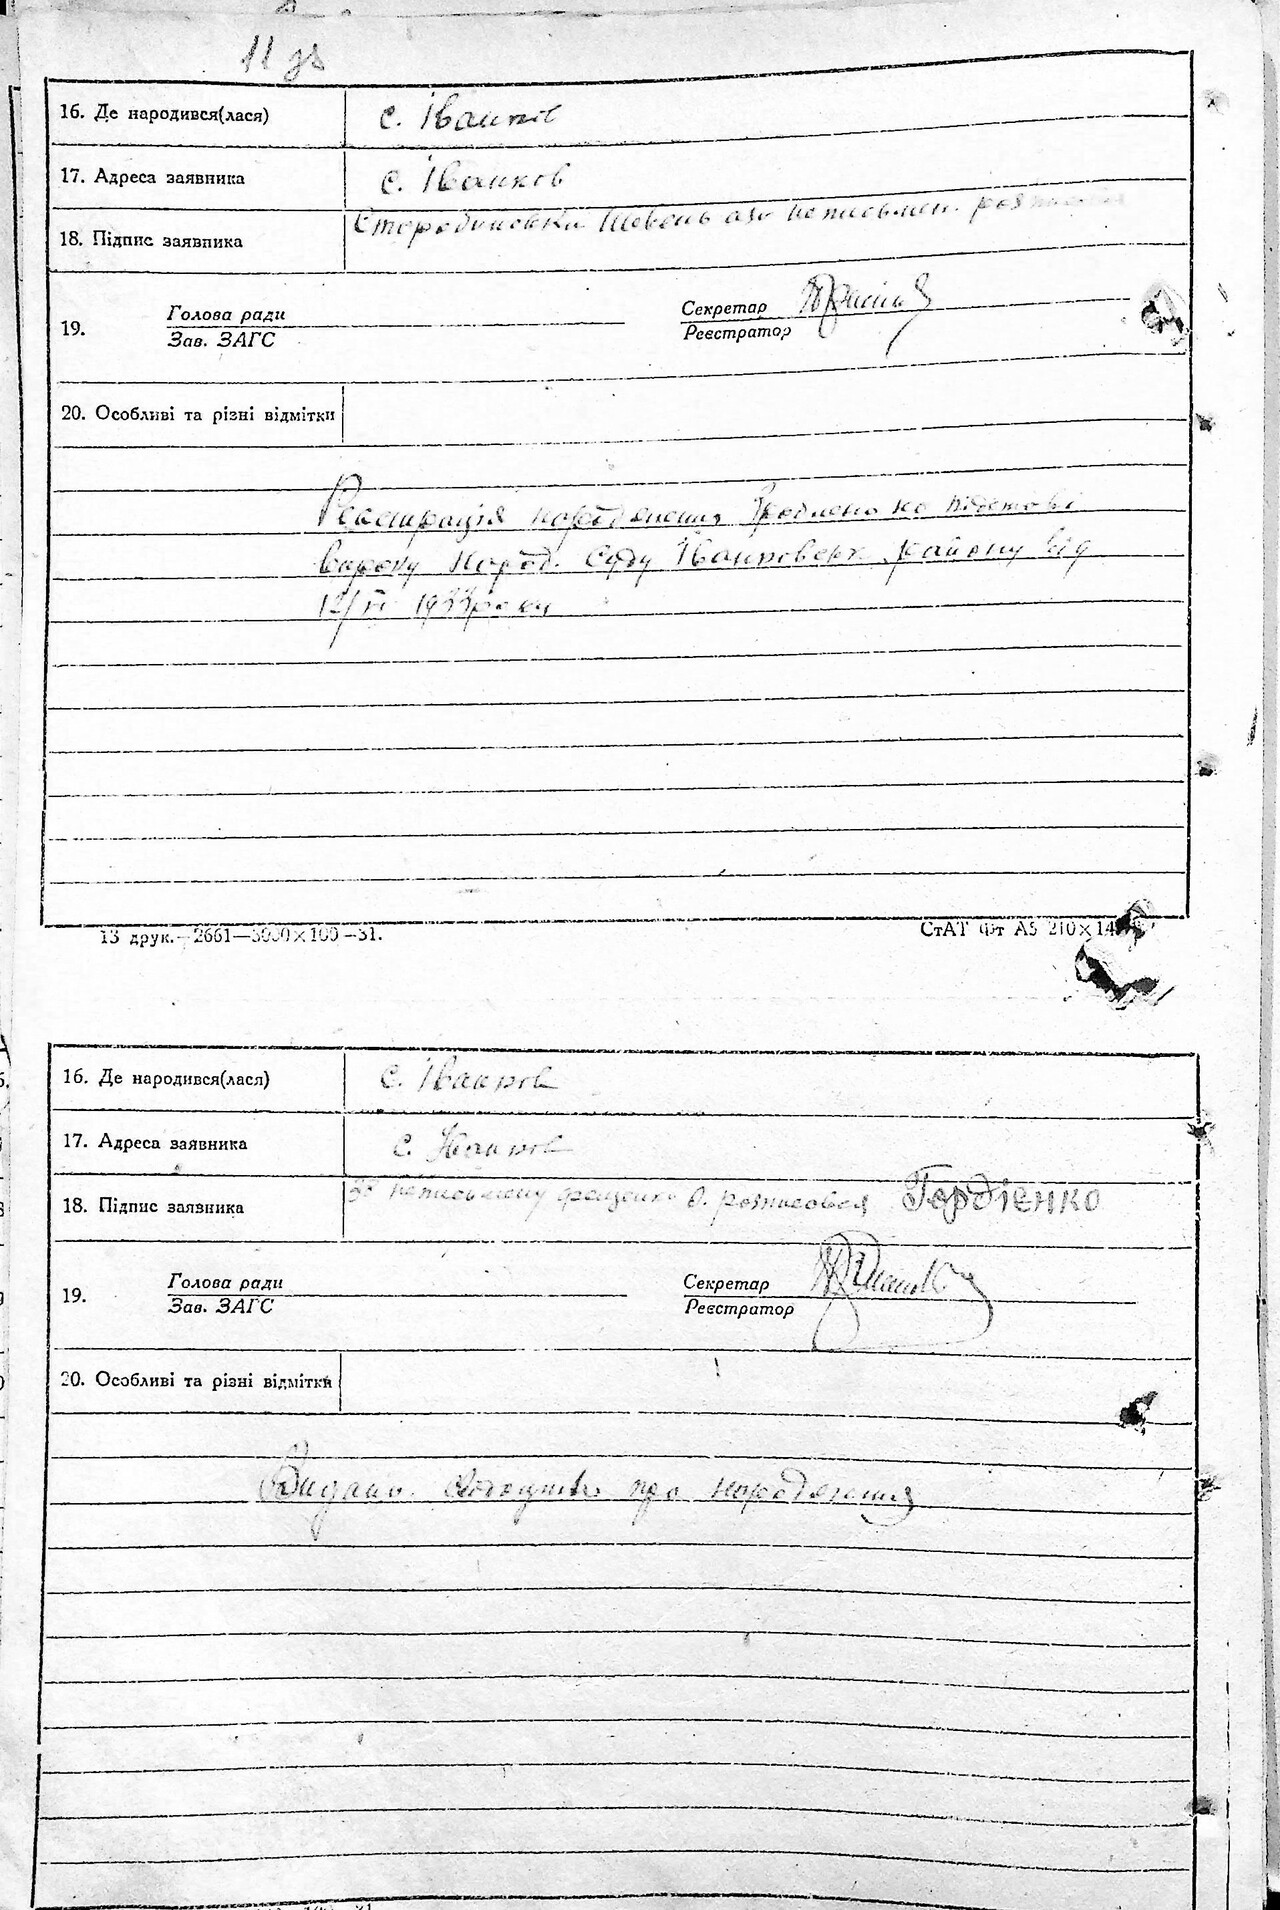 11 зв
16. Де народився(лася) с. Іванков
17. Адреса заявника с. Іванков
18. Підпис заявника неписьмен.
19. Голова ради Секретар
Зав. ЗАГС Реєстратор
20. Особливі та різні відмітки
Реєстрація народження зроблено на підставі
вироку Народ. Суду Іванковськ. району від
1933 року
13 друк.—2661—3000×100—31. СтАТ Фт А5 210×14
16. Де народився(лася) с. Іванков
17. Адреса заявника с. Іванков
18. Підпис заявника за неписьмену О. розписовся Гордієнко
19. Голова ради Секретар
Зав. ЗАГС Реєстратор
20. Особливі та різні відмітки
Видано про народження